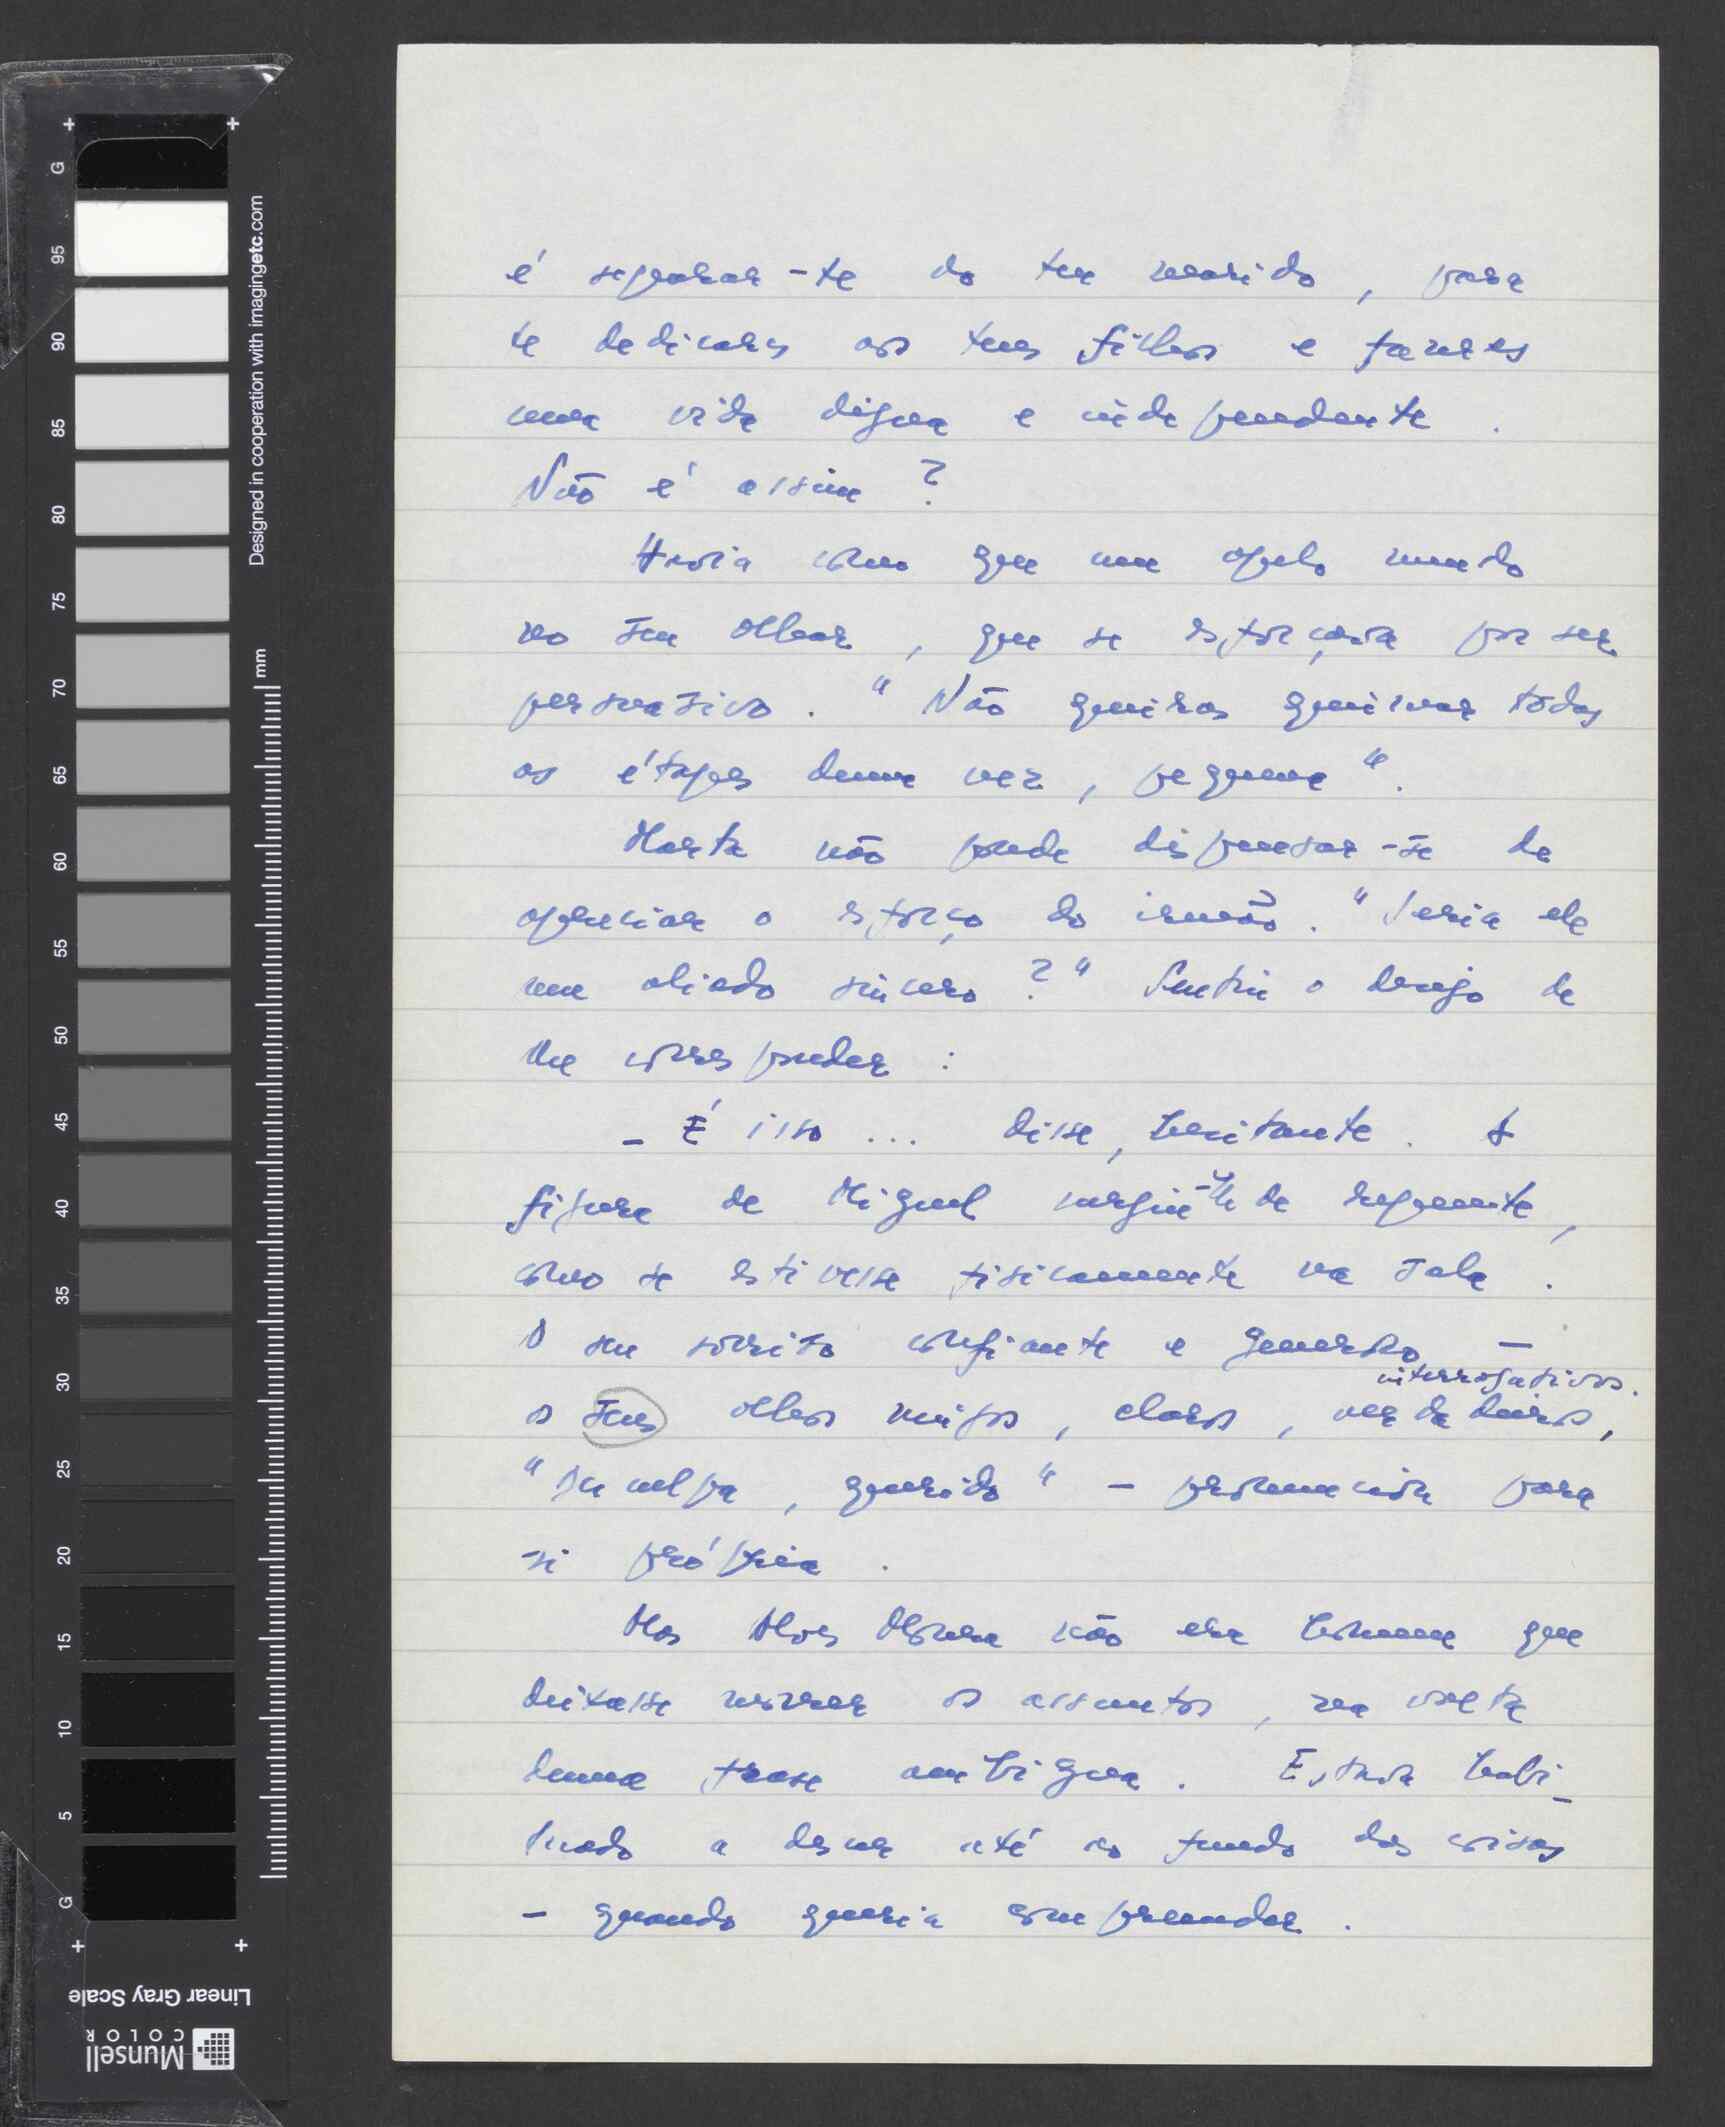 é separar-te do teu marido, para
te dedicares aos teus filhos e fazeres
uma vida digna e independente.
Não é assim?
Havia como que um apelo mudo
no seu olhar, que se esforçava por ser
persuasivo. "Não queiras queimar todas
as étapes duma vez, pequena".
Marta não poude dispensar-se de
apreciar o esforço do irmão. "Seria ele
um aliado sincero?" Sentiu o desejo de
lhe corresponder:
- É isso... disse, hesitante. A
figura de Miguel surgiu-lhe de repente,
como se estivesse fisicamente na sala.
O seu sorriso confiante e generoso —
interrogativos.
os seus olhos meigos, claros, verdadeiros,
"Desculpa, querido" - pronunciou para
si própria.
Mas Moura não era homem que
deixasse morrer os assuntos, na volta
duma frase ambígua. Estava habi-
tuado a descer até ao fundo das coisas
- quando queria compreender.
Designed in cooperation with imagingetc.com
mm
G
95
90
85
80
75
70
65
60
55
50
45
40
35
30
25
20
15
10
5
G
Linear Gray Scale
Munsell
COLOR